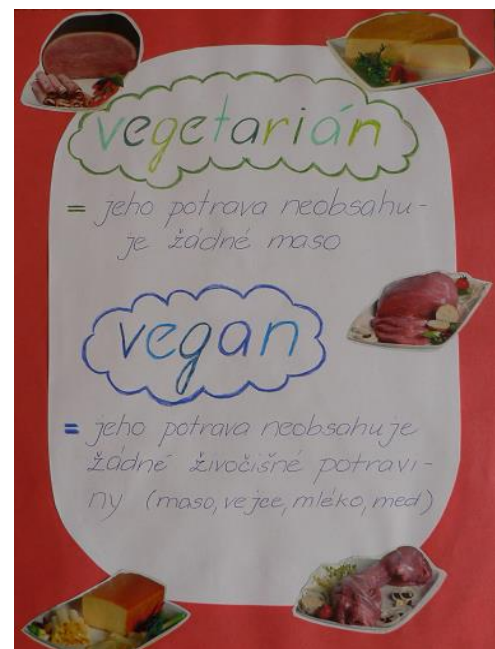 vegetarián
= jeho potrava neobsahu-
je žádné maso
vegan
= jeho potrava neobsahuje
žádné živočišné potravi-
ny (maso, vejce, mléko, med)